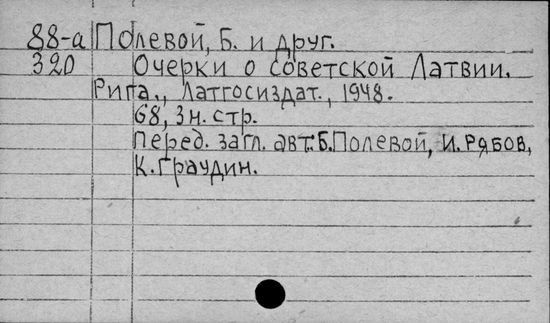 88-а Полевой, Б. и друг.
320 Очерки о советской Латвии.
Рига., Латгосиздат., 1948.
68, 3 н. стр.
Перед. загл. авт.: Б. Полевой, И. Рябов,
К. Граудин.